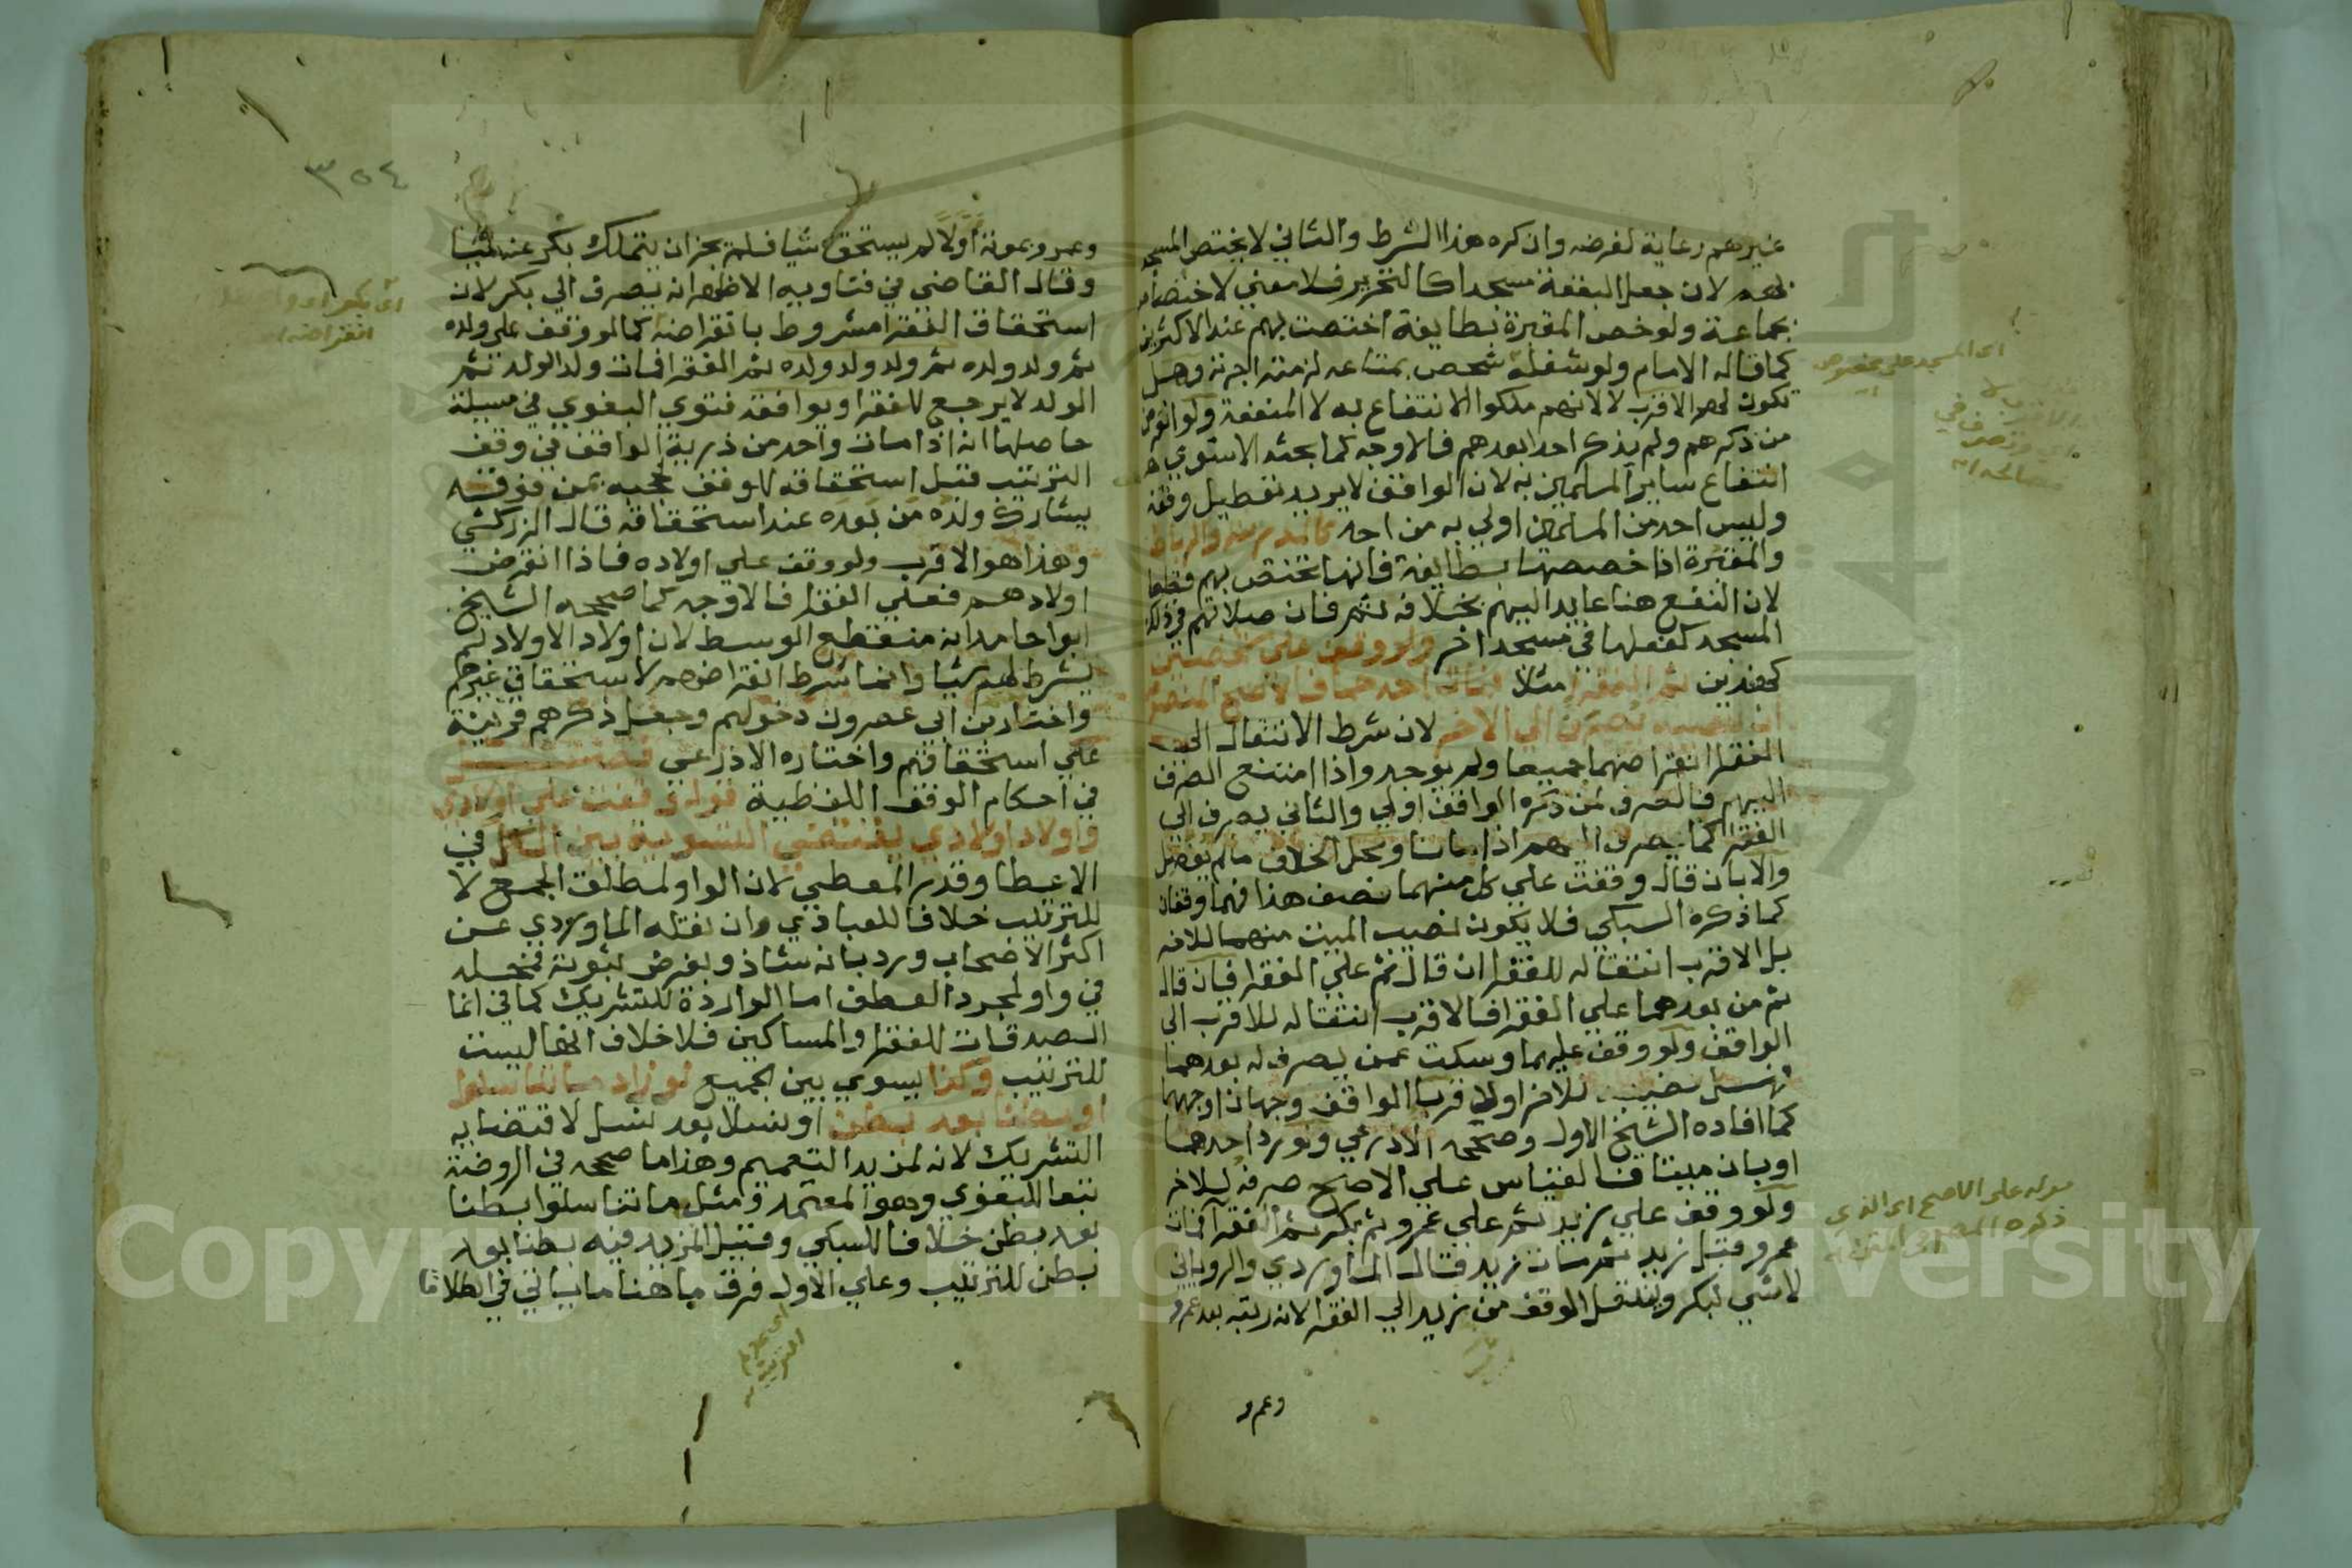 غيرهم رعاية لغرضه وان كره هذا الشرط والثاني لا يختص المسجد
بهم لان جعل البقعة مسجدا كالتحرير فلا معني لاختصاصه
بجماعة ولو خص المقبرة بطايفة اختصت بهم عند الاكثرين
كما قاله الامام ولو شغله شخص بمتاعه لزمته اجرته وهل
تكون لهم الاقرب لا لانهم ملكوا الانتفاع به لا المنفعة ولو انقرض
من ذكرهم ولم يذكر احدا بعدهم فالاوجه كما بحثه الاسنوي
انتفاع ساير المسلمين به لان الواقف لا يريد تعطيل وقفه
وليس احد من المسلمين اولي به من احد كالمدرسة والرباط
والمقبرة اذا خصصها بطايفة فانها تختص بهم قطعا
لان النفع هنا عايد اليهم بخلافه ثم فان صلاتهم في ذلك
المسجد كفعلها في مسجد اخر ولو وقف علي شخصين
كهذين ثم الفقرا مثلا فمات احدهما فالاصح المنصوص
ان نصيبه يصرف الي الاخر لان شرط الانتقال الي
الفقرا انقراضهما جميعا ولم يوجد واذا امتنع الصرف
اليهم فالصرف لمن ذكره الواقف اولي والثاني يصرف الي
الفقرا كما يصرف اليهم اذا ماتا ومحل الخلاف ما لم يفصل
والا بان قال وقفت علي كل منهما نصف هذا فهما وقفان
كما ذكره السبكي فلا يكون نصيب الميت منهما للاخر
بل الاقرب انتقاله للفقرا ان قال ثم علي الفقرا فان قال
ثم من بعدهما علي الفقرا فالاقرب انتقاله للاقرب الي
الواقف ولو وقف عليهما وسكت عمن يصرف له بعدهما
فهل نصيبه للاخر او لاقربا الواقف وجهان اوجههما
كما افاده الشيخ الاول وصححه الاذرعي ولو رد احدهما
او بان ميتا فالقياس علي الاصح صرفه للاخر
ولو وقف علي زيد ثم علي عمرو ثم بكر ثم الفقرا فمات
عمرو قبل زيد ثم مات زيد قال الماوردي والروياني
لا شي لبكر وينتقل الوقف من زيد الي الفقرا لانه رتبه بعد عمرو
وعمرو
اي المسجد علي مخصوص
قوله علي الاصح اي الذي
ذكره المص في المتن
٣٥٤
وعمرو بموته اولا لم يستحق شيا فلم يجز ان يتملك بكر عنه شيا
وقال القاضي في فتاويه الاظهر انه يصرف الي بكر لان
استحقاق الفقرا مشروط بانقراضه كما لو وقف علي ولده
ثم ولد ولده ثم ولد ولد ولده ثم الفقرا فمات ولد الولد ثم
الولد لا يرجع للفقرا ويوافقه فتوي البغوي في مسيلة
حاصلها انه اذا مات واحد من ذرية الواقف في وقف
الترتيب قبل استحقاقه للوقف لحجبه بمن فوقه
يشارك ولده من بعده عند استحقاقه قال الزركشي
وهذا هو الاقرب ولو وقف علي اولاده فاذا انقرض
اولادهم فعلي الفقرا فالاوجه كما صححه الشيخ
ابو حامد انه منقطع الوسط لان اولاد الاولاد لم
يشرط لهم شيا وانما شرط انقراضهم لاستحقاق غيرهم
واختار بن ابي عصرون دخولهم وجعل ذكرهم قرينة
علي استحقاقهم واختاره الاذرعي فصل
في احكام الوقف اللفظية قوله وقفت علي اولادي
واولاد اولادي يقتضي التسوية بين الكل في
الاعطا وقدر المعطي لان الواو لمطلق الجمع لا
للترتيب خلافا للعبادي وان نقله الماوردي عن
اكثر الاصحاب ورد بانه شاذ وبفرض ثبوته فمحله
في واو لمجرد العطف اما الواردة للتشريك كما في انما
الصدقات للفقرا والمساكين فلا خلاف انها ليست
للترتيب وكذا يسوي بين الجميع لو زاد ما تناسلوا
او بطنا بعد بطن او نسلا بعد نسل لاقتضايه
التشريك لانه لمزيد التعميم وهذا ما صححه في الروضة
تبعا للبغوي وهو المعتمد ومثل ما تناسلوا بطنا
بعد بطن خلافا للسبكي وقيل المزيد فيه بطنا بعد
بطن للترتيب وعلي الاول فرق ما هنا ما ياتي في الطلاق
اي بكر
انقراضه
اي عدم
الترتيب